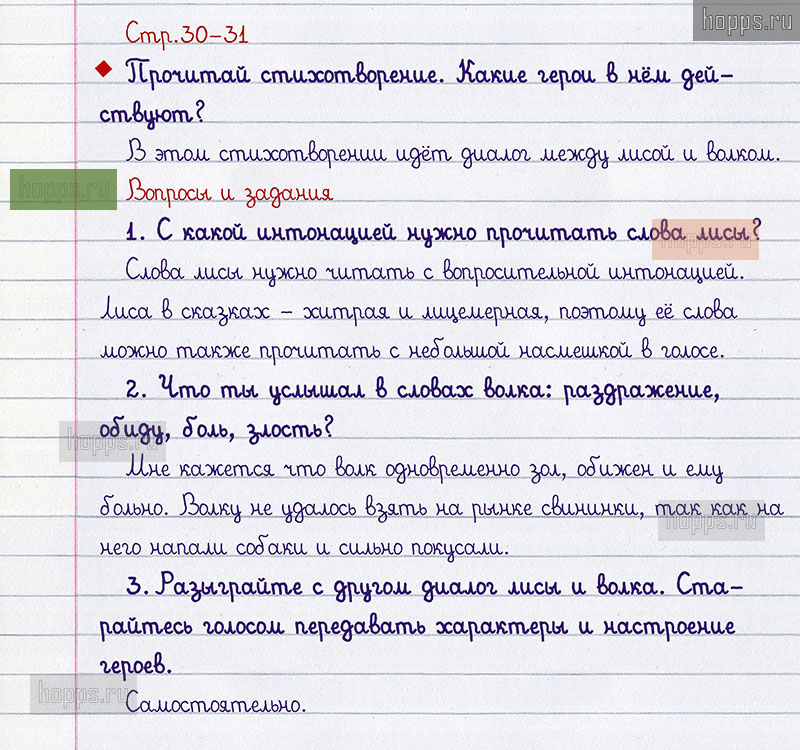 hopps.ru
Стр.30-31
Прочитай стихотворение. Какие герои в нём дей-
ствуют?
В этом стихотворении идёт диалог между лисой и волком.
hopps.ru
Вопросы и задания
1. С какой интонацией нужно прочитать слова лисы?
hopps.ru
Слова лисы нужно читать с вопросительной интонацией.
Лиса в сказках – хитрая и лицемерная, поэтому её слова
можно также прочитать с небольшой насмешкой в голосе.
2. Что ты услышал в словах волка: раздражение,
обиду, боль, злость?
hopps.ru
Мне кажется что волк одновременно зол, обижен и ему
больно. Волку не удалось взять на рынке свининки, так как на
hopps.ru
него напали собаки и сильно покусали.
3. Разыграйте с другом диалог лисы и волка. Ста-
райтесь голосом передавать характеры и настроение
героев.
hopps.ru
Самостоятельно.